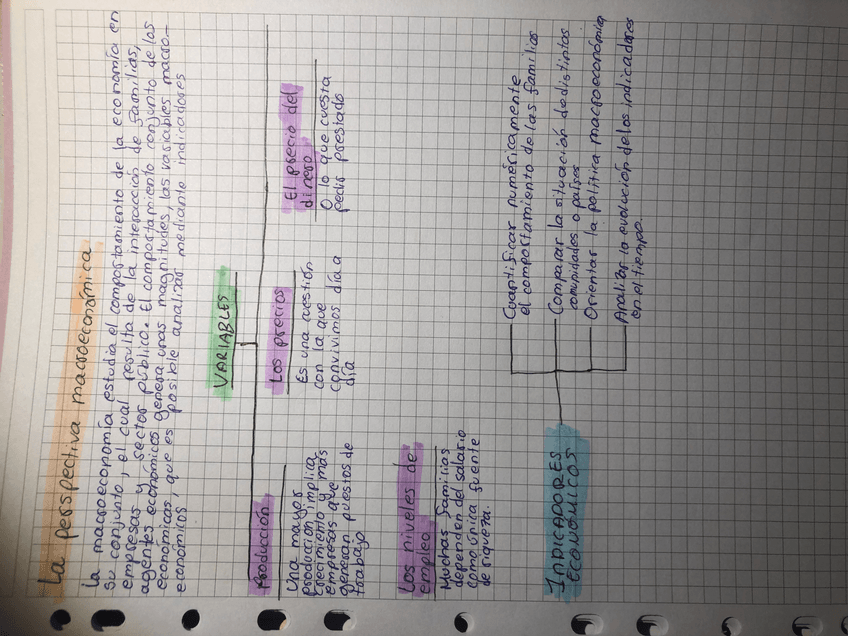 La perspectiva macroeconómica
La macroeconomía estudia el comportamiento de la economía en
su conjunto, el cual resulta de la interacción de familias,
empresas y sector público. El comportamiento conjunto de los
agentes económicos genera unas magnitudes, las variables macro-
económicas, que es posible analizar mediante indicadores
económicos
VARIABLES
Producción
Una mayor
producción implica
crecimiento y más
empresas que
generan puestos de
trabajo
Los precios
Es una cuestión
con la que
convivimos día a
día
El precio del
dinero
O lo que cuesta
pedir prestado
Los niveles de
empleo
Muchas familias
dependen del salario
como única fuente
de riqueza.
INDICADORES
ECONÓMICOS
Cuantificar numéricamente
el comportamiento de las familias
Comparar la situación de distintas
comunidades o países
Orientar la política macroeconómica
Analizar la evolución de los indicadores
en el tiempo.